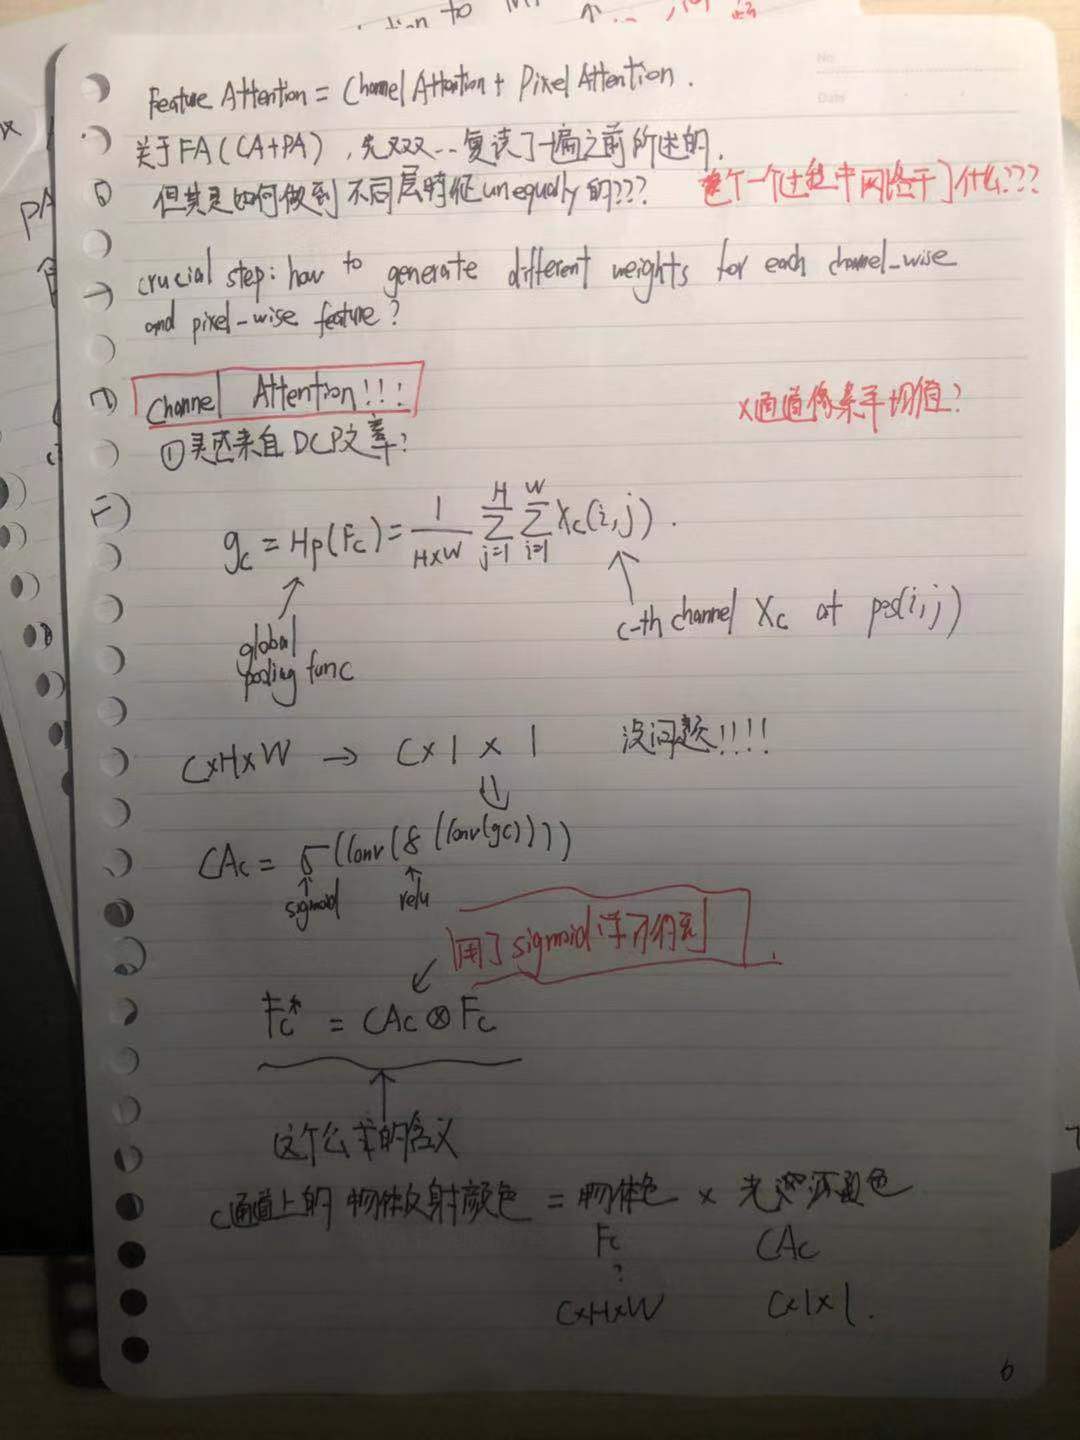 Feature Attention = Channel Attention + Pixel Attention.
关于FA(CA+PA),先又又又...复读了一遍之前所述的.
但其是如何做到不同层特征unequally的???
整个一个过程中网络干了什么???
crucial step: how to generate different weights for each channel-wise
and pixel-wise feature?
Channel Attention!!!
x通道像素平均值?
①灵感来自DCP文章?
gc = Hp(Fc) = 1/H×W Σ j=1 H Σ i=1 W Xc(i,j).
global
pooling func
c-th channel Xc at pos(i,j)
C×H×W → C×1×1 没问题!!!!
CAc = σ(Conv(δ(Conv(gc))))
sigmoid relu
用了sigmoid
Fc* = CAc ⊗ Fc
这个公式的含义
c通道上的物体反射颜色 = 物体色 × 光源色
Fc CAc
?
C×H×W C×1×1.
6